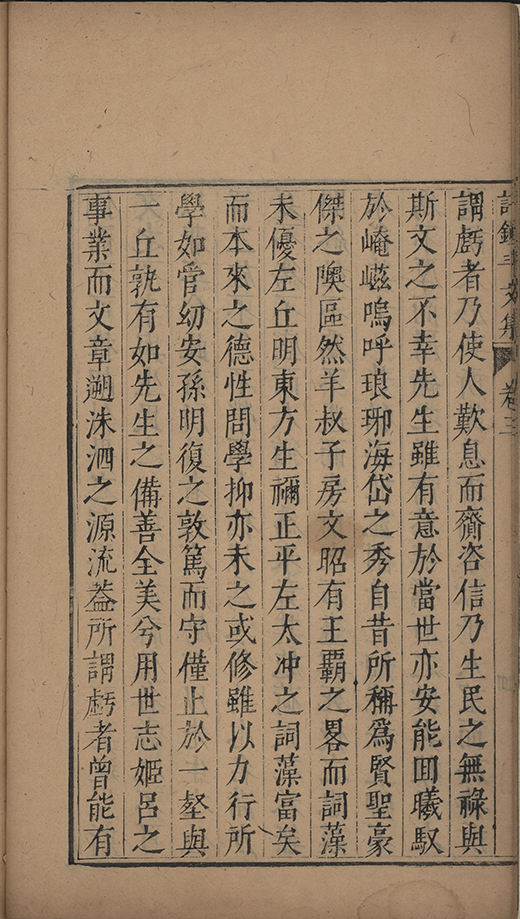 許鍾斗文集 卷三
謂虧者乃使人歎息而齎咨信乃生民之無祿與
斯文之不幸先生雖有意於當世亦安能囬曦馭
於崦嵫嗚呼琅琊海岱之秀自昔所稱爲賢聖豪
傑之隩區然羊叔子房文昭有王霸之畧而詞藻
未優左丘明東方生禰正平左太冲之詞藻富矣
而本來之德性問學抑亦未之或修雖以力行所
學如管幼安孫明復之敦篤而守僅止於一壑與
一丘孰有如先生之備善全美兮用世志姬呂之
事業而文章遡洙泗之源流葢所謂虧者曾能有